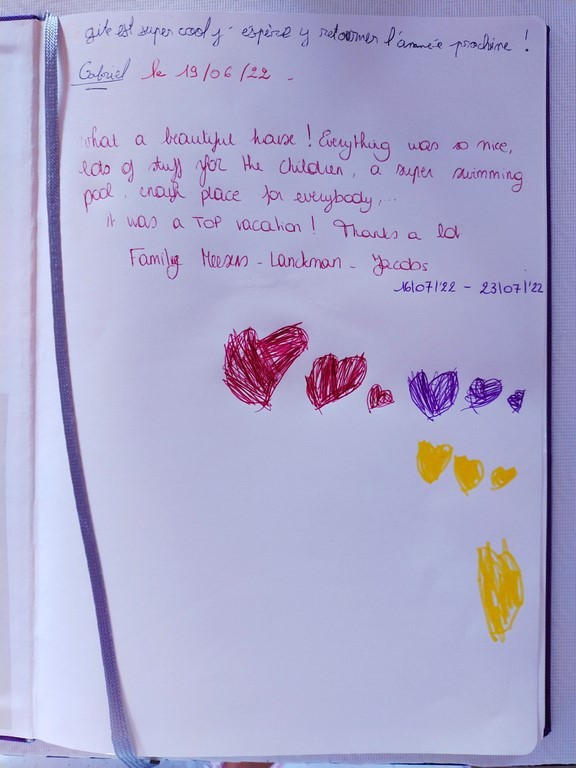 gite est super cool j' espère y retourner l'année prochaine !
Gabriel le 19/06/22 .
what a beautiful house ! Everything was so nice,
lots of stuff for the children, a super swimming
pool, enough place for everybody,...
it was a TOP vacation ! Thanks a lot
Family Meesens - Lanckman - Jacobs
16/07/'22 - 23/07/'22